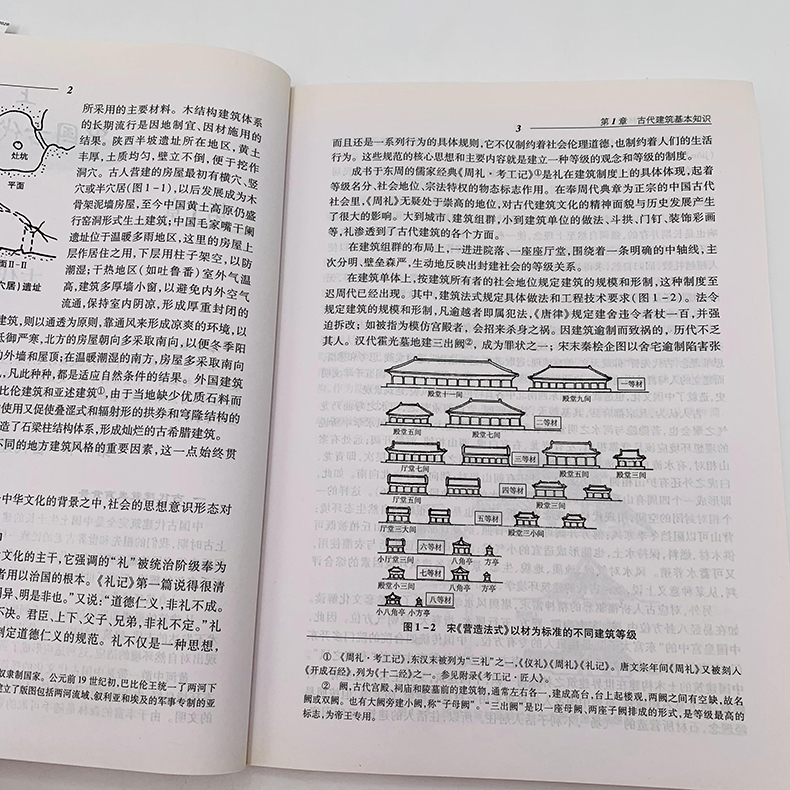 2
所采用的主要材料。木结构建筑体系
的长期流行是因地制宜、因材施用的
结果。陕西半坡遗址所在地区,黄土
丰厚,土质均匀,壁立不倒,便于挖作
洞穴。古人营建的房屋最初有横穴、竖
穴或半穴居(图1-1),以后发展成为木
骨架泥墙房屋,至今中国黄土高原仍盛
行窑洞形式生土建筑;中国毛家嘴干阑
遗址位于温暖多雨地区,这里的房屋上
层作居住之用,下层用柱子架空,以防
潮湿;干热地区(如吐鲁番)室外气温
高,建筑多厚墙小窗,以避免内外空气
流通,保持室内阴凉,形成厚重封闭的
建筑,则以通透为原则,靠通风来形成凉爽的环境,以
抵御严寒,北方的房屋朝向多采取南向,以便冬季阳
的外墙和屋顶;在温暖潮湿的南方,房屋多采取南向
,凡此种种,都是适应自然条件的结果。外国建筑
比伦建筑和亚述建筑①,由于当地缺少优质石料而
使用又促使叠涩式和辐射形的拱券和穹隆结构的
造了石梁柱结构体系,形成灿烂的古希腊建筑。
不同的地方建筑风格的重要因素,这一点始终贯
中华文化的背景之中,社会的思想意识形态对
文化的主干,它强调的“礼”被统治阶级奉为
者用以治国的根本。《礼记》第一篇说得很清
同异、明是非也。”又说:“道德仁义,非礼不成。
不决。君臣、上下、父子、兄弟,非礼不定。”礼
制定道德仁义的规范。礼不仅是一种思想,
奴隶制国家。公元前19世纪初,巴比伦王统一了两河下
建立了版图包括两河流域、叙利亚和埃及的军事专制的亚
灶坑
平面
面Ⅱ-Ⅱ
穴居)遗址
3
第1章 古代建筑基本知识
而且还是一系列行为的具体规则,它不仅制约着社会伦理道德,也制约着人们的生活
行为。这些规范的核心思想和主要内容就是建立一种等级的观念和等级的制度。
成书于东周的儒家经典《周礼·考工记》①是礼在建筑制度上的具体体现,起着
等级名分、社会地位、宗法特权的物态标志作用。在奉周代典章为正宗的中国古代
社会里,《周礼》无疑处于崇高的地位,对古代建筑文化的精神面貌与历史发展产生
了很大的影响。大到城市、建筑组群,小到建筑单位的做法、斗拱、门钉、装饰彩画
等,礼渗透到了古代建筑的各个方面。
在建筑组群的布局上,一进进院落、一座座厅堂,围绕着一条明确的中轴线,主
次分明、壁垒森严,生动地反映出封建社会的等级关系。
在建筑单体上,按建筑所有者的社会地位规定建筑的规模和形制,这种制度至
迟周代已经出现。其中,建筑法式规定具体做法和工程技术要求(图1-2)。法令
规定建筑的规模和形制,凡逾越者即属犯法,《唐律》规定建舍违令者杖一百,并强
迫拆改;如被指为模仿宫殿者,会招来杀身之祸。因建筑逾制而致祸的,历代不乏
其人。汉代霍光墓地建三出阙②,成为罪状之一;宋末秦桧企图以舍宅逾制陷害张
一等材
殿堂十一间 殿堂九间
二等材
殿堂五间 殿堂七间
三等材
厅堂七间 殿堂五间 殿堂三间
四等材
厅堂五间 殿堂三间
五等材
厅堂三大间 殿堂三小间
六等材
小厅堂三间 八角亭 方亭
七等材
殿堂小三间 八角亭 方亭
八等材
小八角亭 小方亭
图1-2 宋《营造法式》以材为标准的不同建筑等级
① 《周礼·考工记》,东汉末被列为“三礼”之一,《仪礼》《周礼》《礼记》。唐文宗年间《周礼》又被刻入
《开成石经》,列为《十二经》之一。参见附录《考工记·匠人》。
② 阙,古代宫殿、祠庙和陵墓前的建筑物,通常左右各一,建成高台,台上起楼观,两阙之间有空缺,故名
阙或双阙。也有大阙旁建小阙,称“子母阙”。“三出阙”是以一座母阙、两座子阙排成的形式,是等级最高的
标志,为帝王专用。